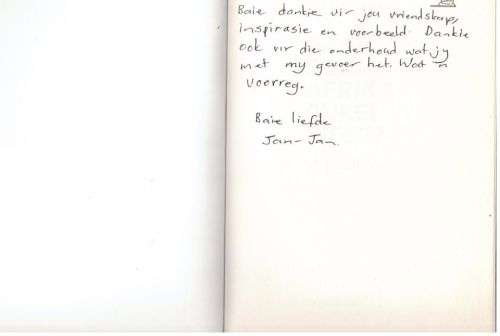 Baie dankie vir jou vriendskap,
inspirasie en voorbeeld. Dankie
ook vir die onderhoud wat jy
met my gevoer het. Wat 'n
voorreg.
Baie liefde
Jan-Jan.